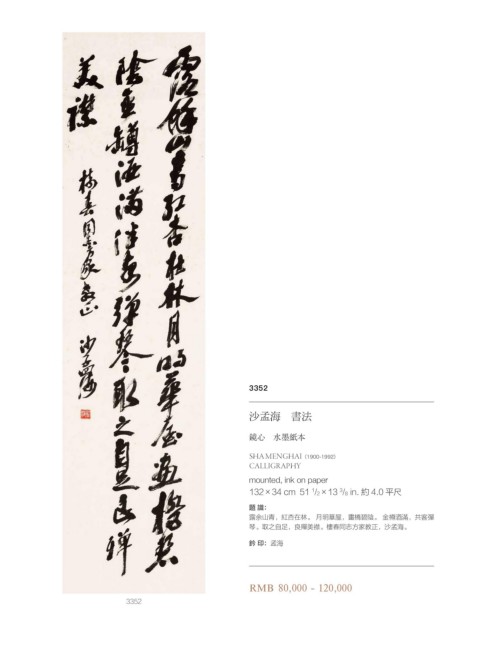 露餘山青紅杏在林月明華屋畫橋碧
陰金罇酒滿伴客彈琴取之自足良殫
美襟
樓春同志方家教正 沙孟海
3352
3352
沙孟海 書法
鏡心 水墨紙本
SHA MENGHAI (1900-1992)
CALLIGRAPHY
mounted, ink on paper
132×34 cm 51 1/2×13 3/8 in. 約 4.0 平尺
題識：
露余山青，紅杏在林。月明華屋，畫橋碧陰。金樽酒滿，共客彈
琴，取之自足，良殫美襟。樓春同志方家教正，沙孟海。
鈐印：孟海
RMB 80,000 - 120,000